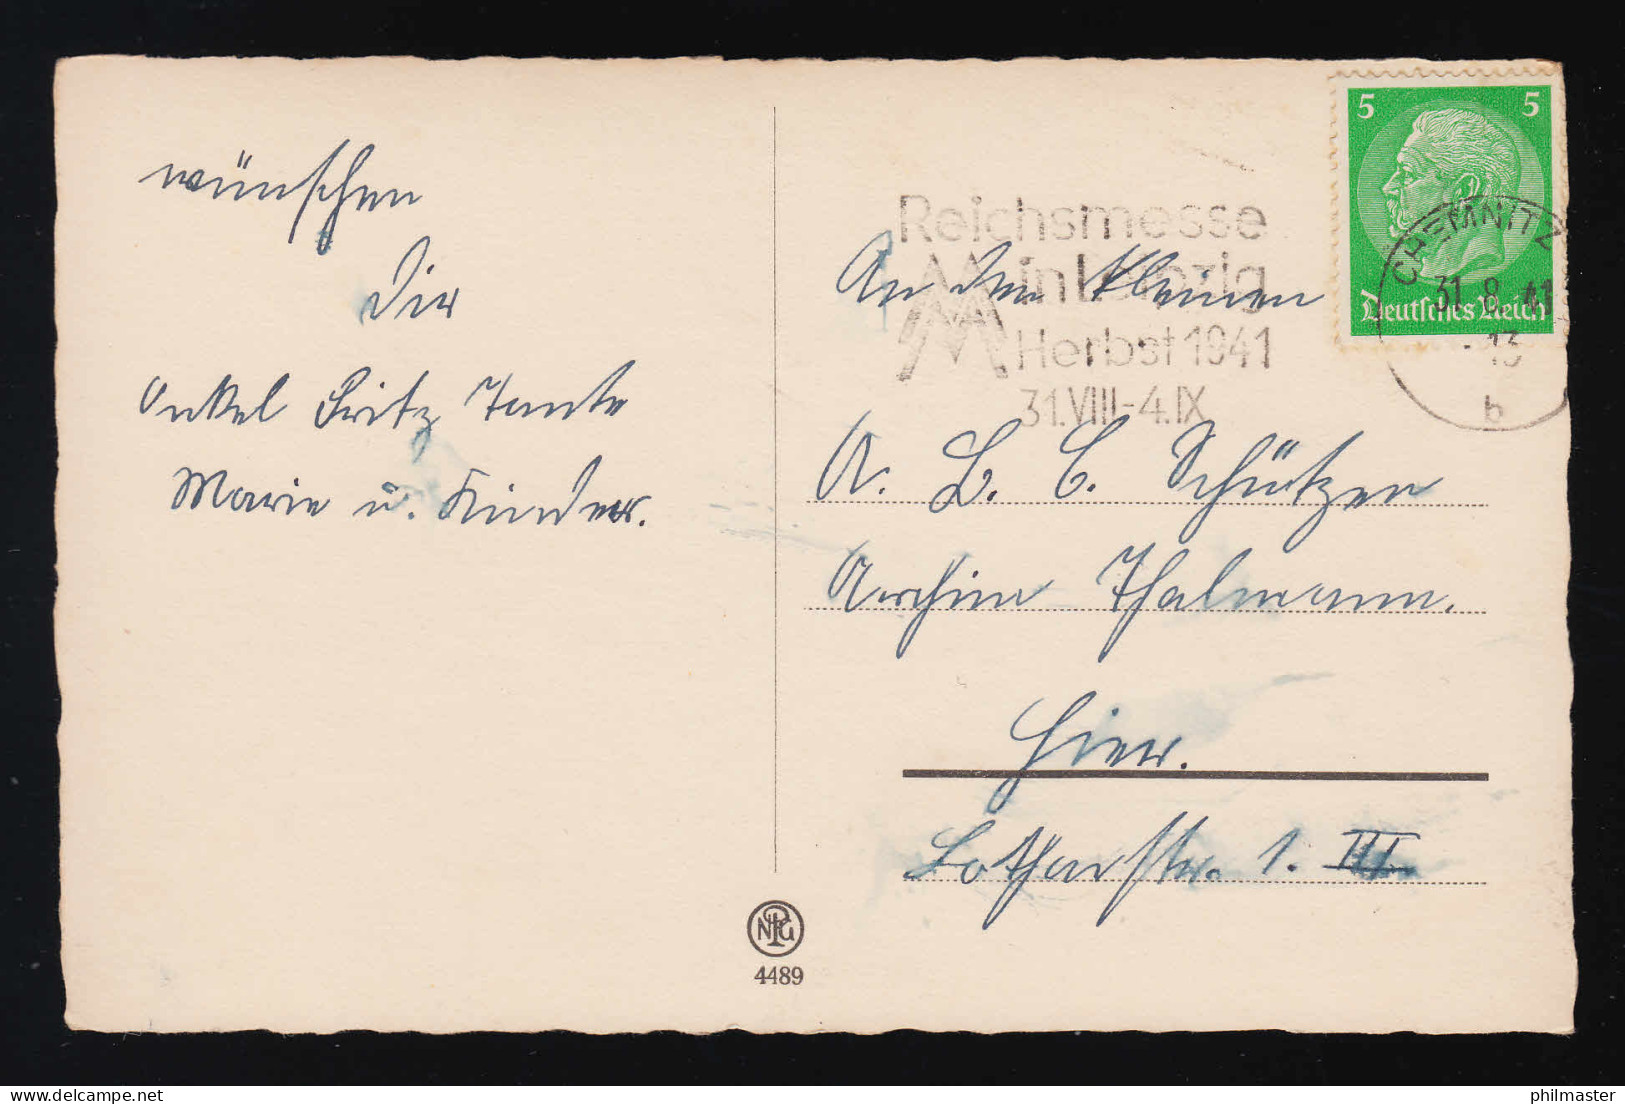 wünschen
Dir
Onkel Fritz Tante
Marie u. Kinder.
Reichsmesse
in Leipzig
Herbst 1941
31.VIII-4.IX
5 5
Deutsches Reich
CHEMNITZ
31.8.41
-13
b
An den kleinen
A. B. C. Schützen
Thalmann.
Hier.
Lotharstr. 1. III
NPG
4489
philmaster